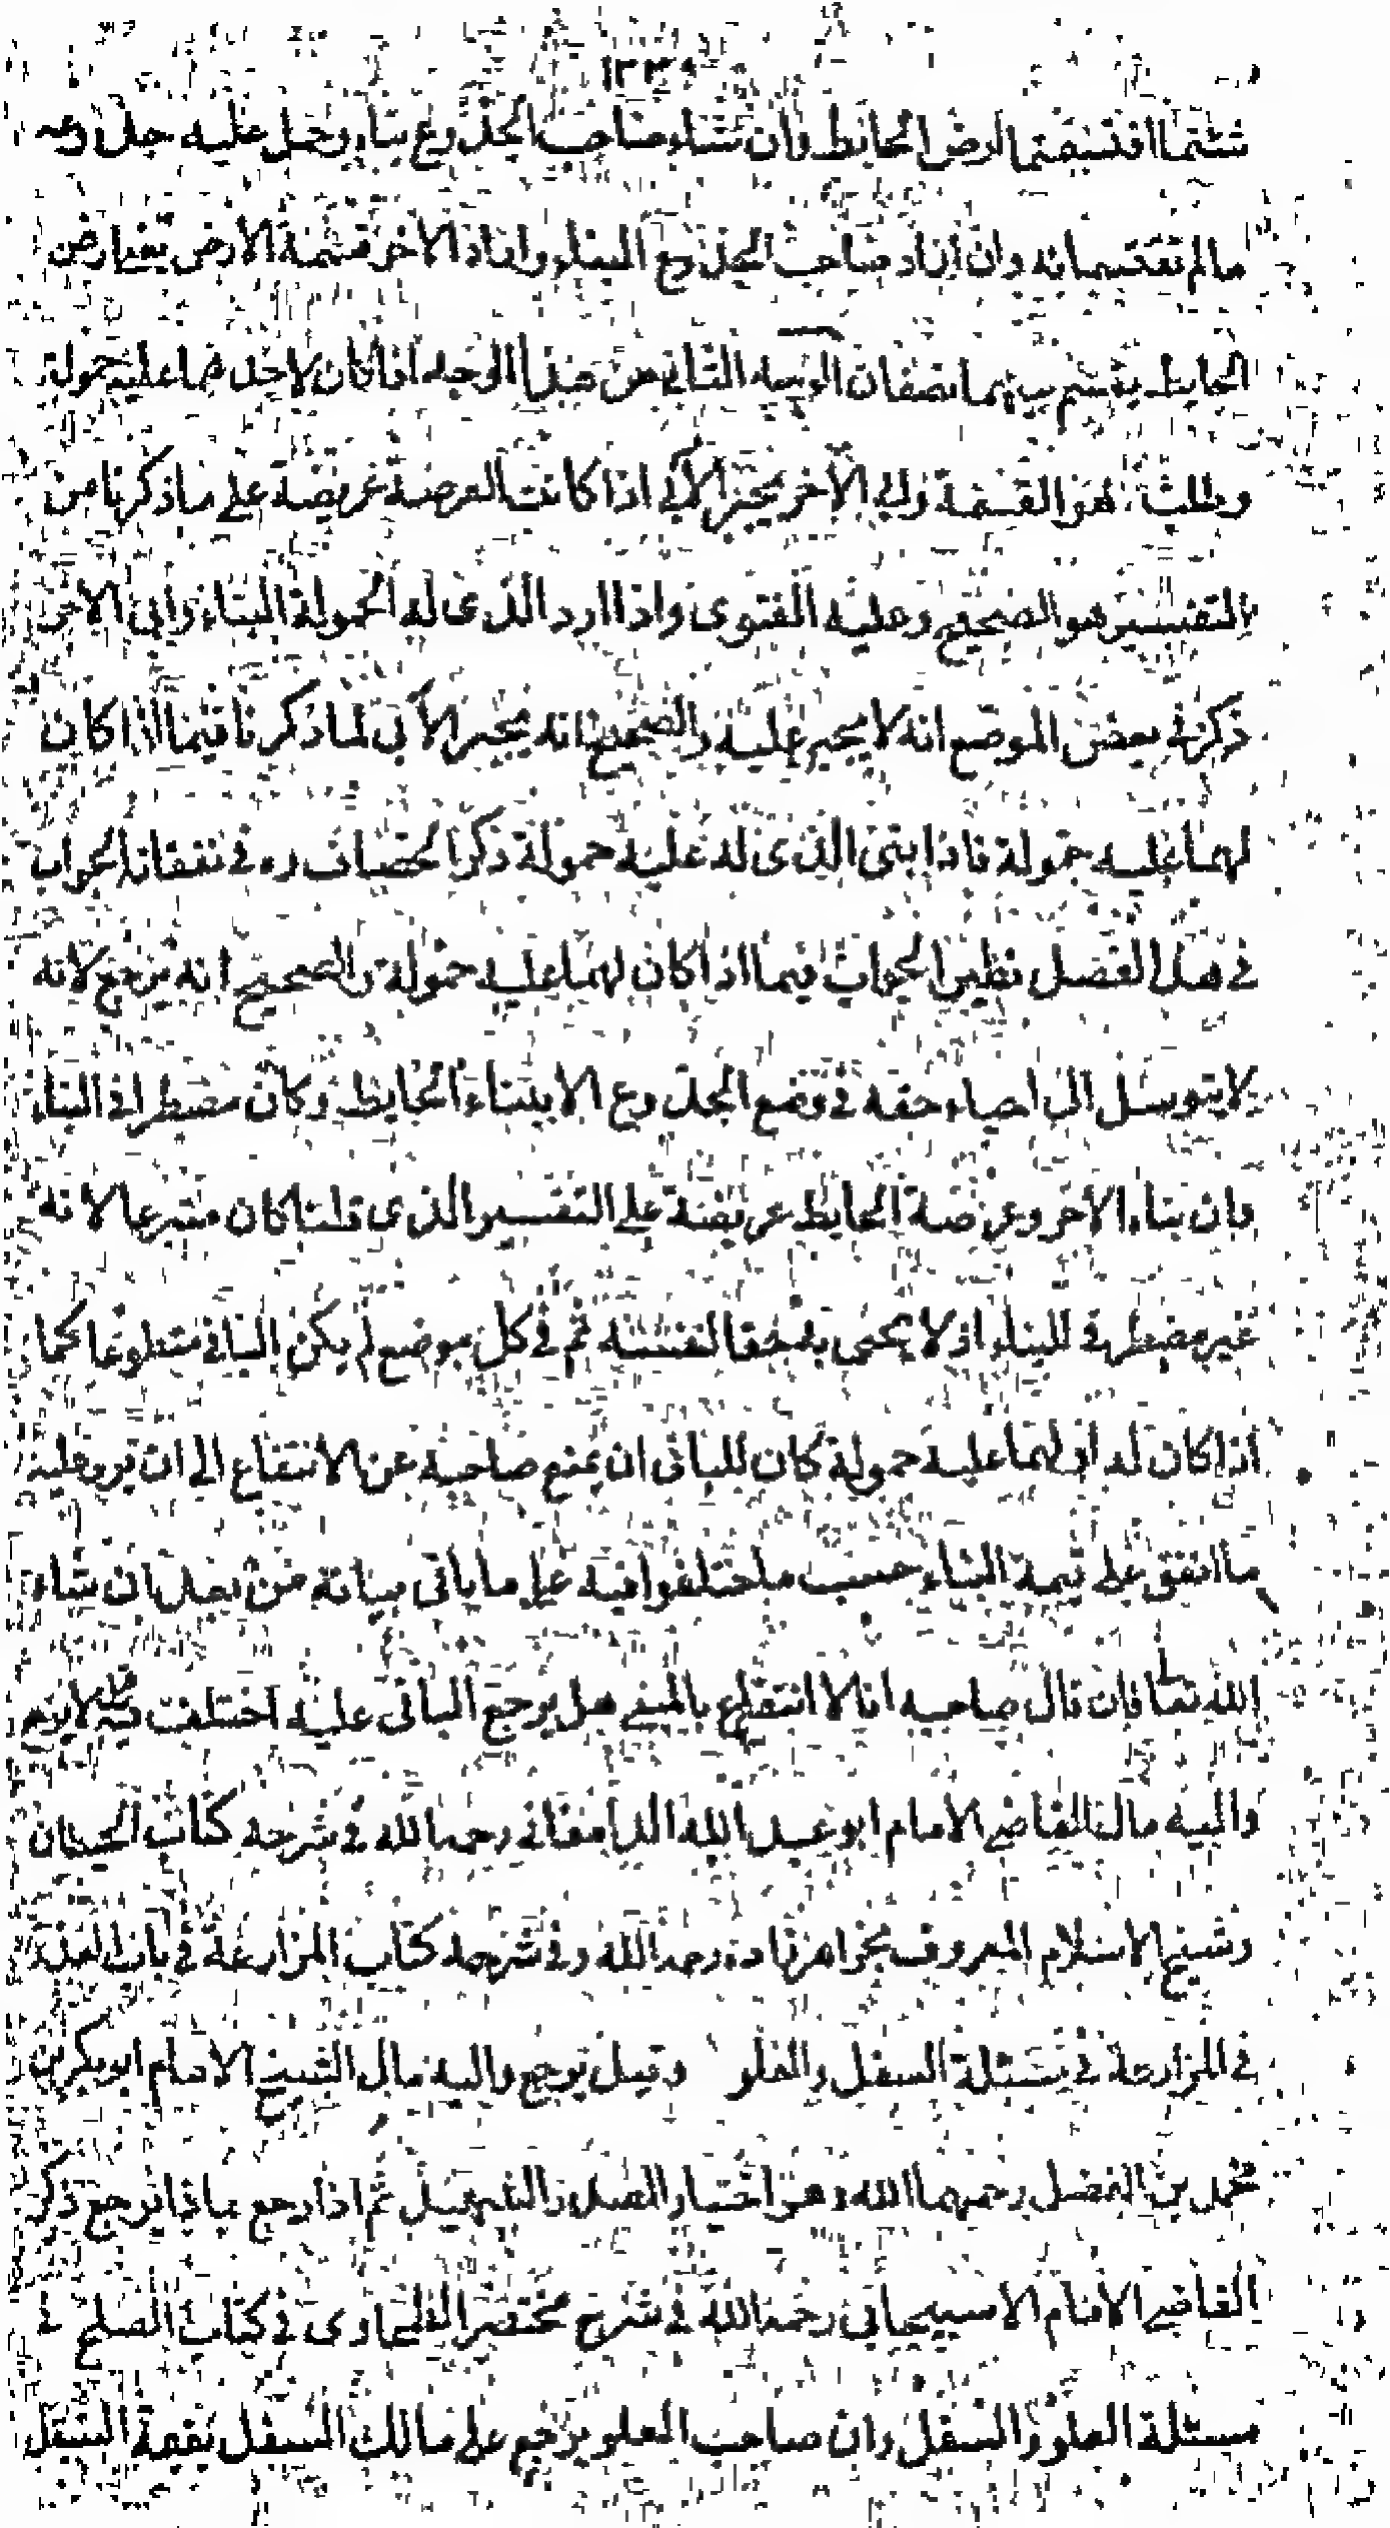 شئتما اقتسمتما ارض الحايط وان شاء صاحب الجذوع بناء وحمل عليه جذوعه
مالم تقتسمانه وان اراد صاحب الجذوع البناء واراد الاخر قسمة الارض يعني ارض
الحايط يقسم بينهما نصفان الوجه الثاني من هذا الوجه اذا كان لاحدهما عليه حمولة
وطلب هو القسمة وابى الاخر يجبر الآبي اذا كانت العرصة عريضة على ما ذكرنا من
التفسير هو الصحيح وعليه الفتوى واذا ارد الذى له الحمولة البناء وابى الاخر
ذكر في بعض الموضع انه لا يجبر عليه والصحيح انه يجبر الآبى لما ذكرنا فيما اذا كان
لهما عليه حمولة فاذا ابتنى الذى له عليه حمولة ذكر الخصاف ره فى نفقاته الجواب
في هذا الفصل نظير الجواب فيما اذا كان لهما عليه حمولة والصحيح انه يرجع لانه
لا يتوسل الى احياء حقه فى وضع الجذوع الا ببناء الحايط وكان مضطرا فى البناء
وان بناء الاخر وعرصة الحايط عريضة على التفسير الذى قلنا كان متبرعا لانه
غير مضطر في البناء اذ لا يحيى به حقا لنفسه ثم في كل موضع لم يكن البانى متطوعا كما
اذا كان له او لهما عليه حمولة كان للبانى ان يمنع صاحبه عن الانتفاع الى ان يرد عليه
ما انفق على قيمة البناء حسب ما اختلفوا فيه على ما ياتى بيانه من بعد ان شاء
الله تعالى فان قال صاحبه انا لا انتفع بالمبنى هل يرجع البانى عليه اختلفت فيه قيل لا يرجع
واليه مال القاضي الامام ابو عبد الله الدامغانى رحمه الله في شرحه كتاب الحيطان
وشيخ الاسلام المعروف بخواهرزاده رحمه الله وفى شرحه كتاب المزارعة في باب العذر
في المزارعة في مسئلة السفل والعلو وقيل يرجع واليه مال الشيخ الامام ابو بكر بن
محمد بن الفضل رحمهما الله وهو اختيار الصدر الشهيد ثم اذا رجع بماذا يرجع ذكر
القاضي الامام الاسبيجابي رحمه الله في شرح مختصر الطحاوى في كتاب الصلح في
مسئلة العلو والسفل وان صاحب العلو يرجع على مالك السفل بقيمة السفل